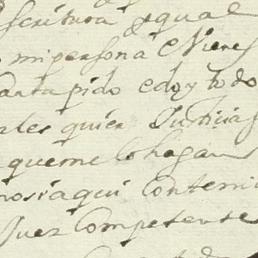 scritura ygual
mi persona e Vienes
anta pido e doy todo
ales quier Justicias
queme lo hagan
nosiaqui Conteni
Juez Competente